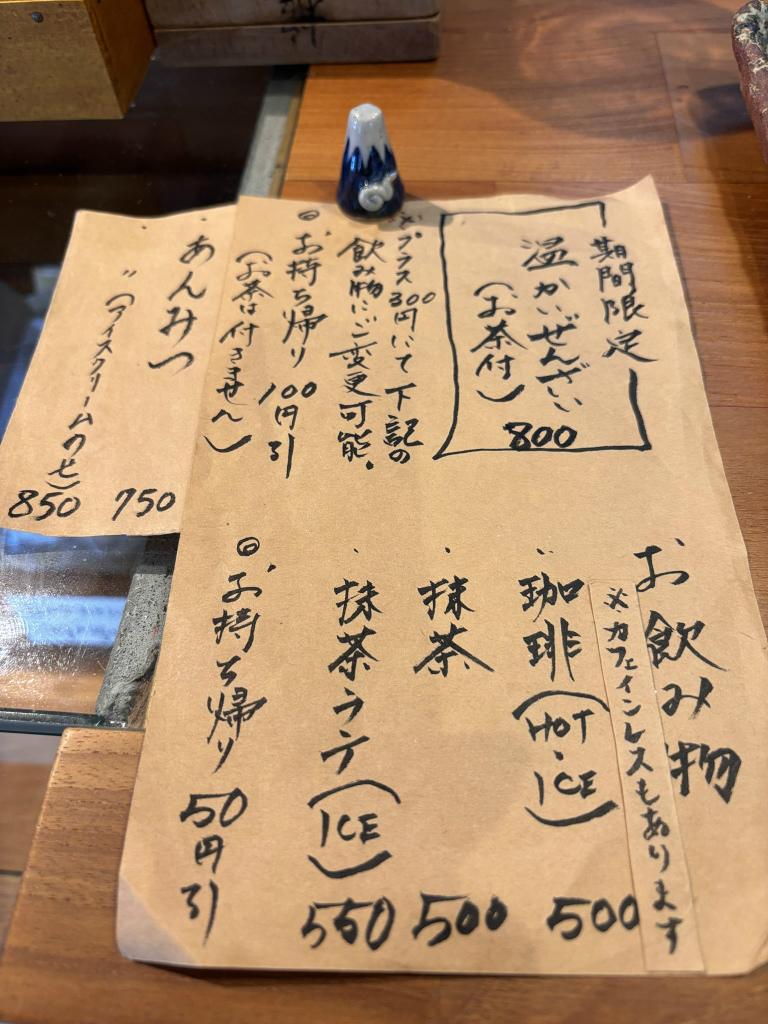 期間限定
温かいぜんざい
(お茶付)
800
※プラス300円にて下記の
飲み物にご変更可能。
◎お持ち帰り 100円引
(お茶は付きません)
・あんみつ 750
〃(アイスクリームのせ) 850
お飲み物
※カフェインレスもあります
・珈琲(HOT・ICE) 500
・抹茶 500
・抹茶ラテ(ICE) 550
◎お持ち帰り 50円引